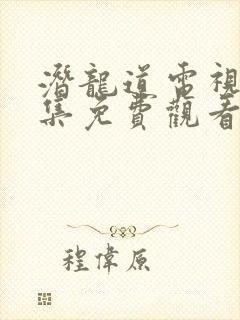 潛龍道電視
集免費觀看
程偉原